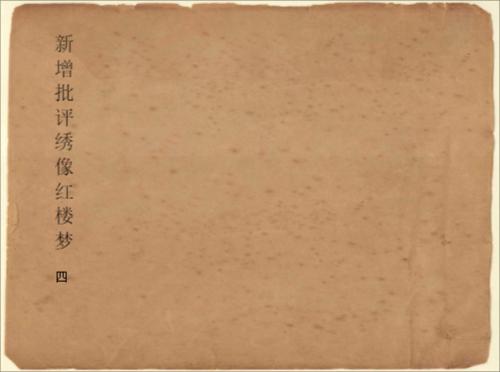 新增批评绣像红楼梦 四